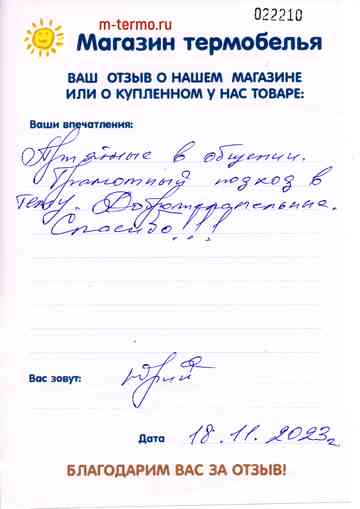 m-termo.ru
022210
Магазин термобелья
ВАШ ОТЗЫВ О НАШЕМ МАГАЗИНЕ
ИЛИ О КУПЛЕННОМ У НАС ТОВАРЕ:
Ваши впечатления:
Приятные в общении.
Грамотный подход в
тему. Доброжелательные.
Спасибо!!!
Вас зовут:
Юрий
Дата 18.11.2023г
БЛАГОДАРИМ ВАС ЗА ОТЗЫВ!